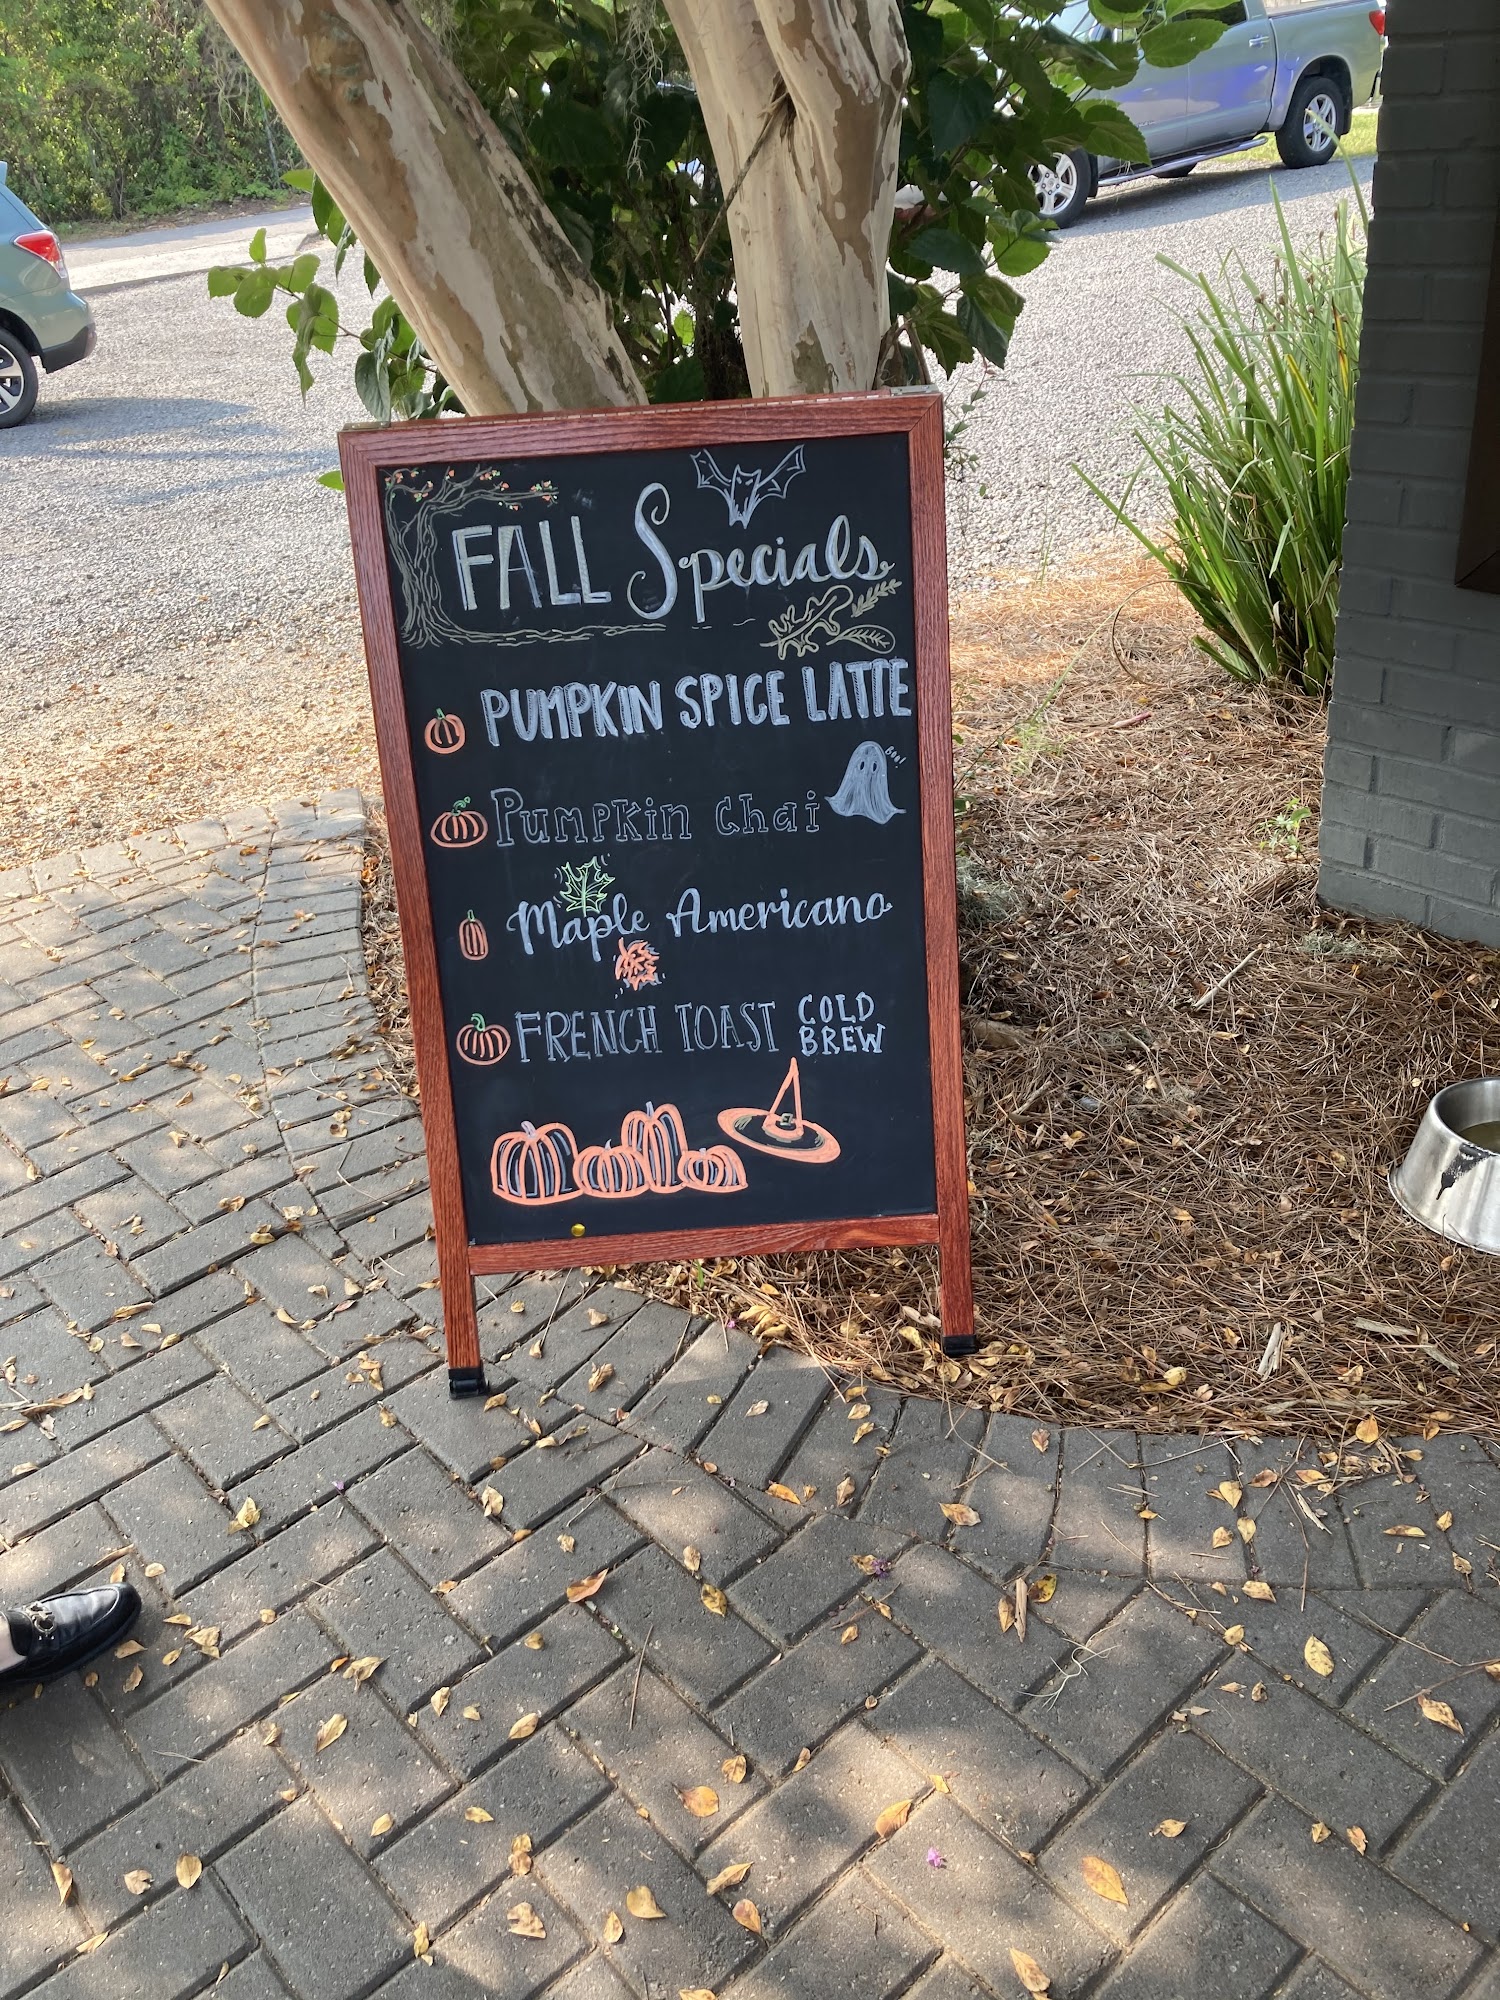 FALL Specials
PUMPKIN SPICE LATTE
Boo!
Pumpkin Chai
Maple Americano
FRENCH TOAST COLD BREW